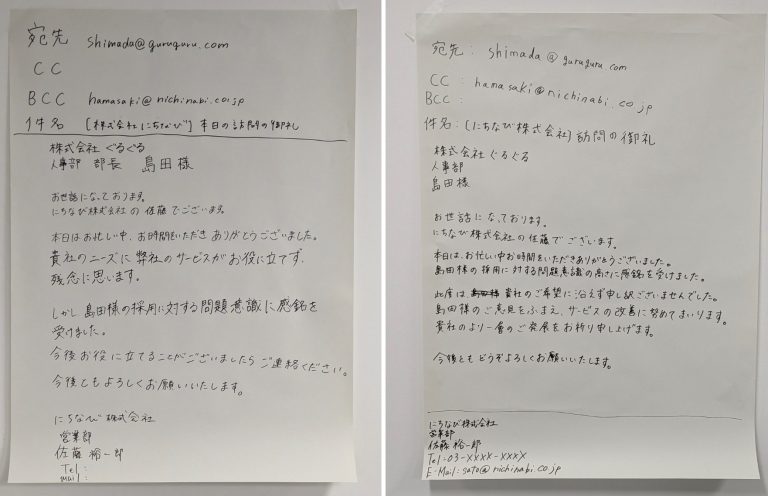 宛先 shimada@guruguru.com
CC
BCC hamasaki@nichinabi.co.jp
件名 [株式会社にちなび] 本日の訪問の御礼
株式会社ぐるぐる
人事部 部長 島田様
お世話になっております。
にちなび株式会社の佐藤でございます。
本日はお忙しい中、お時間をいただきありがとうございました。
貴社のニーズに弊社のサービスがお役に立てず、
残念に思います。
しかし島田様の採用に対する問題意識に感銘を
受けました。
今後お役に立てることがございましたらご連絡ください。
今後ともよろしくお願いいたします。
にちなび株式会社
営業部
佐藤 裕一郎
Tel:
Mail:
宛先: shimada@guruguru.com
CC : hamasaki@nichinabi.co.jp
BCC :
件名:(にちなび株式会社)訪問の御礼
株式会社ぐるぐる
人事部
島田様
お世話になっております。
にちなび株式会社の佐藤でございます。
本日は、お忙しい中お時間をいただきありがとうございました。
島田様の採用に対する問題意識の高さに感銘を受けました。
此度は 貴社のご希望に沿えず申し訳ございませんでした。
島田様のご意見をふまえ、サービスの改善に努めてまいります。
貴社のより一層のご発展をお祈り申し上げます。
今後ともどうぞよろしくお願いいたします。
にちなび株式会社
営業部
佐藤裕一郎
Tel:03-XXXX-XXXX
E-Mail:sato@nichinabi.co.jp